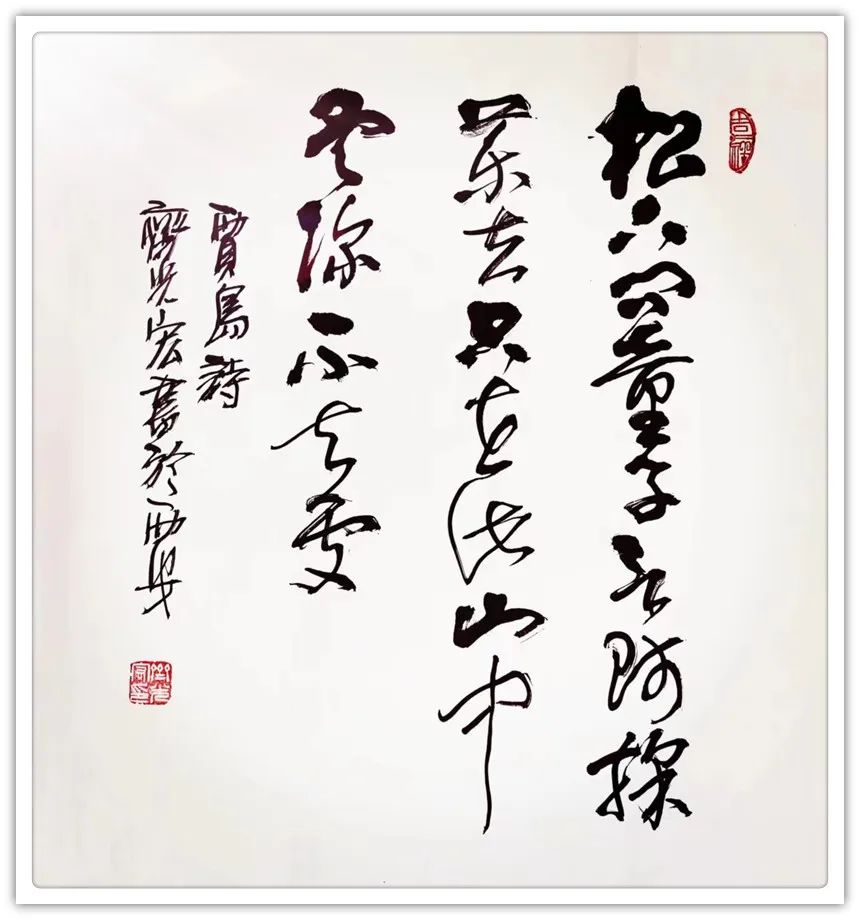 吉祥
松下問童子言師採
藥去只在此山中
雲深不知處
賈島詩
光宏書於西安